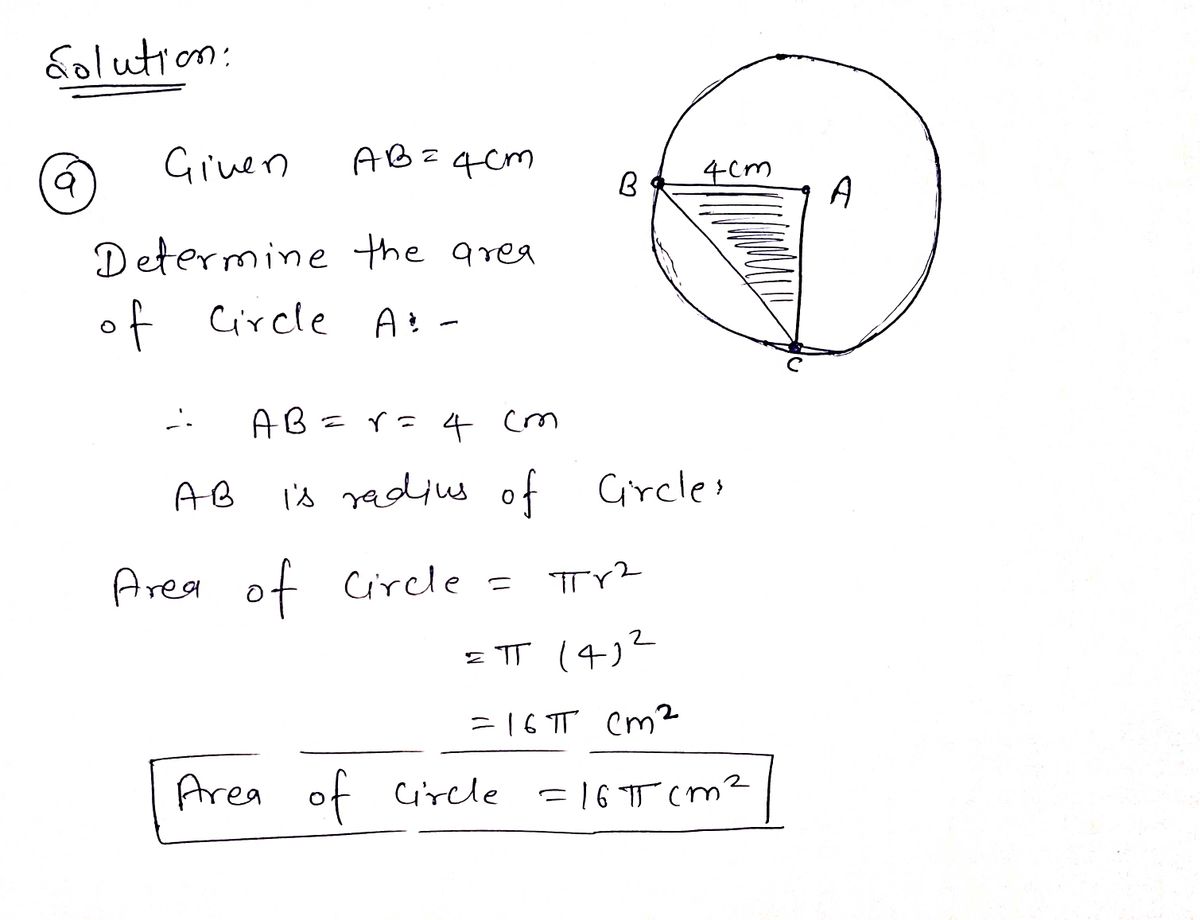 Solution:
(a) Given AB = 4cm
Determine the area
of Circle A: -
∴ AB = r = 4 cm
AB is radius of Circle,
Area of Circle = πr²
= π (4)²
= 16π cm²
Area of Circle = 16π cm²
B
4cm
A
C